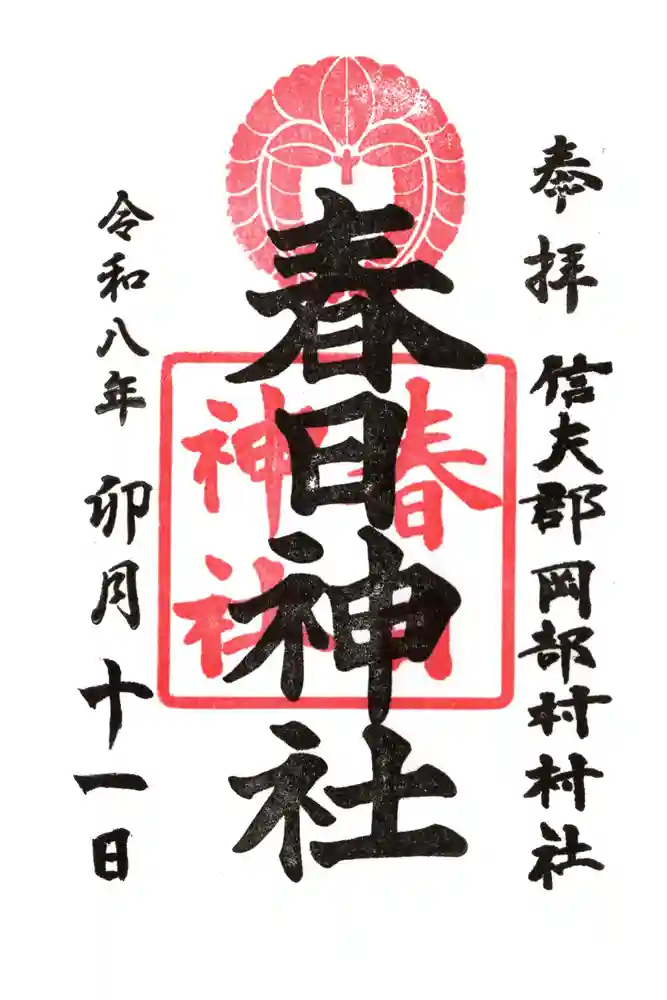 奉拝 信夫郡岡部村村社
春日神社
春日
神社
令和八年 卯月十一日